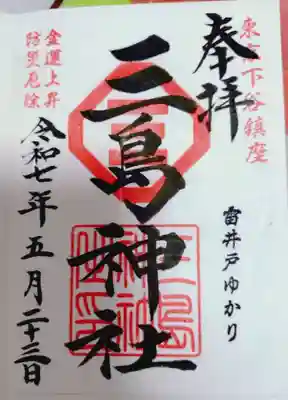 東京下谷鎮座
奉拝
雷井戸ゆかり
三島神社
三島神社之印
金運上昇
防災厄除
令和七年五月二十三日